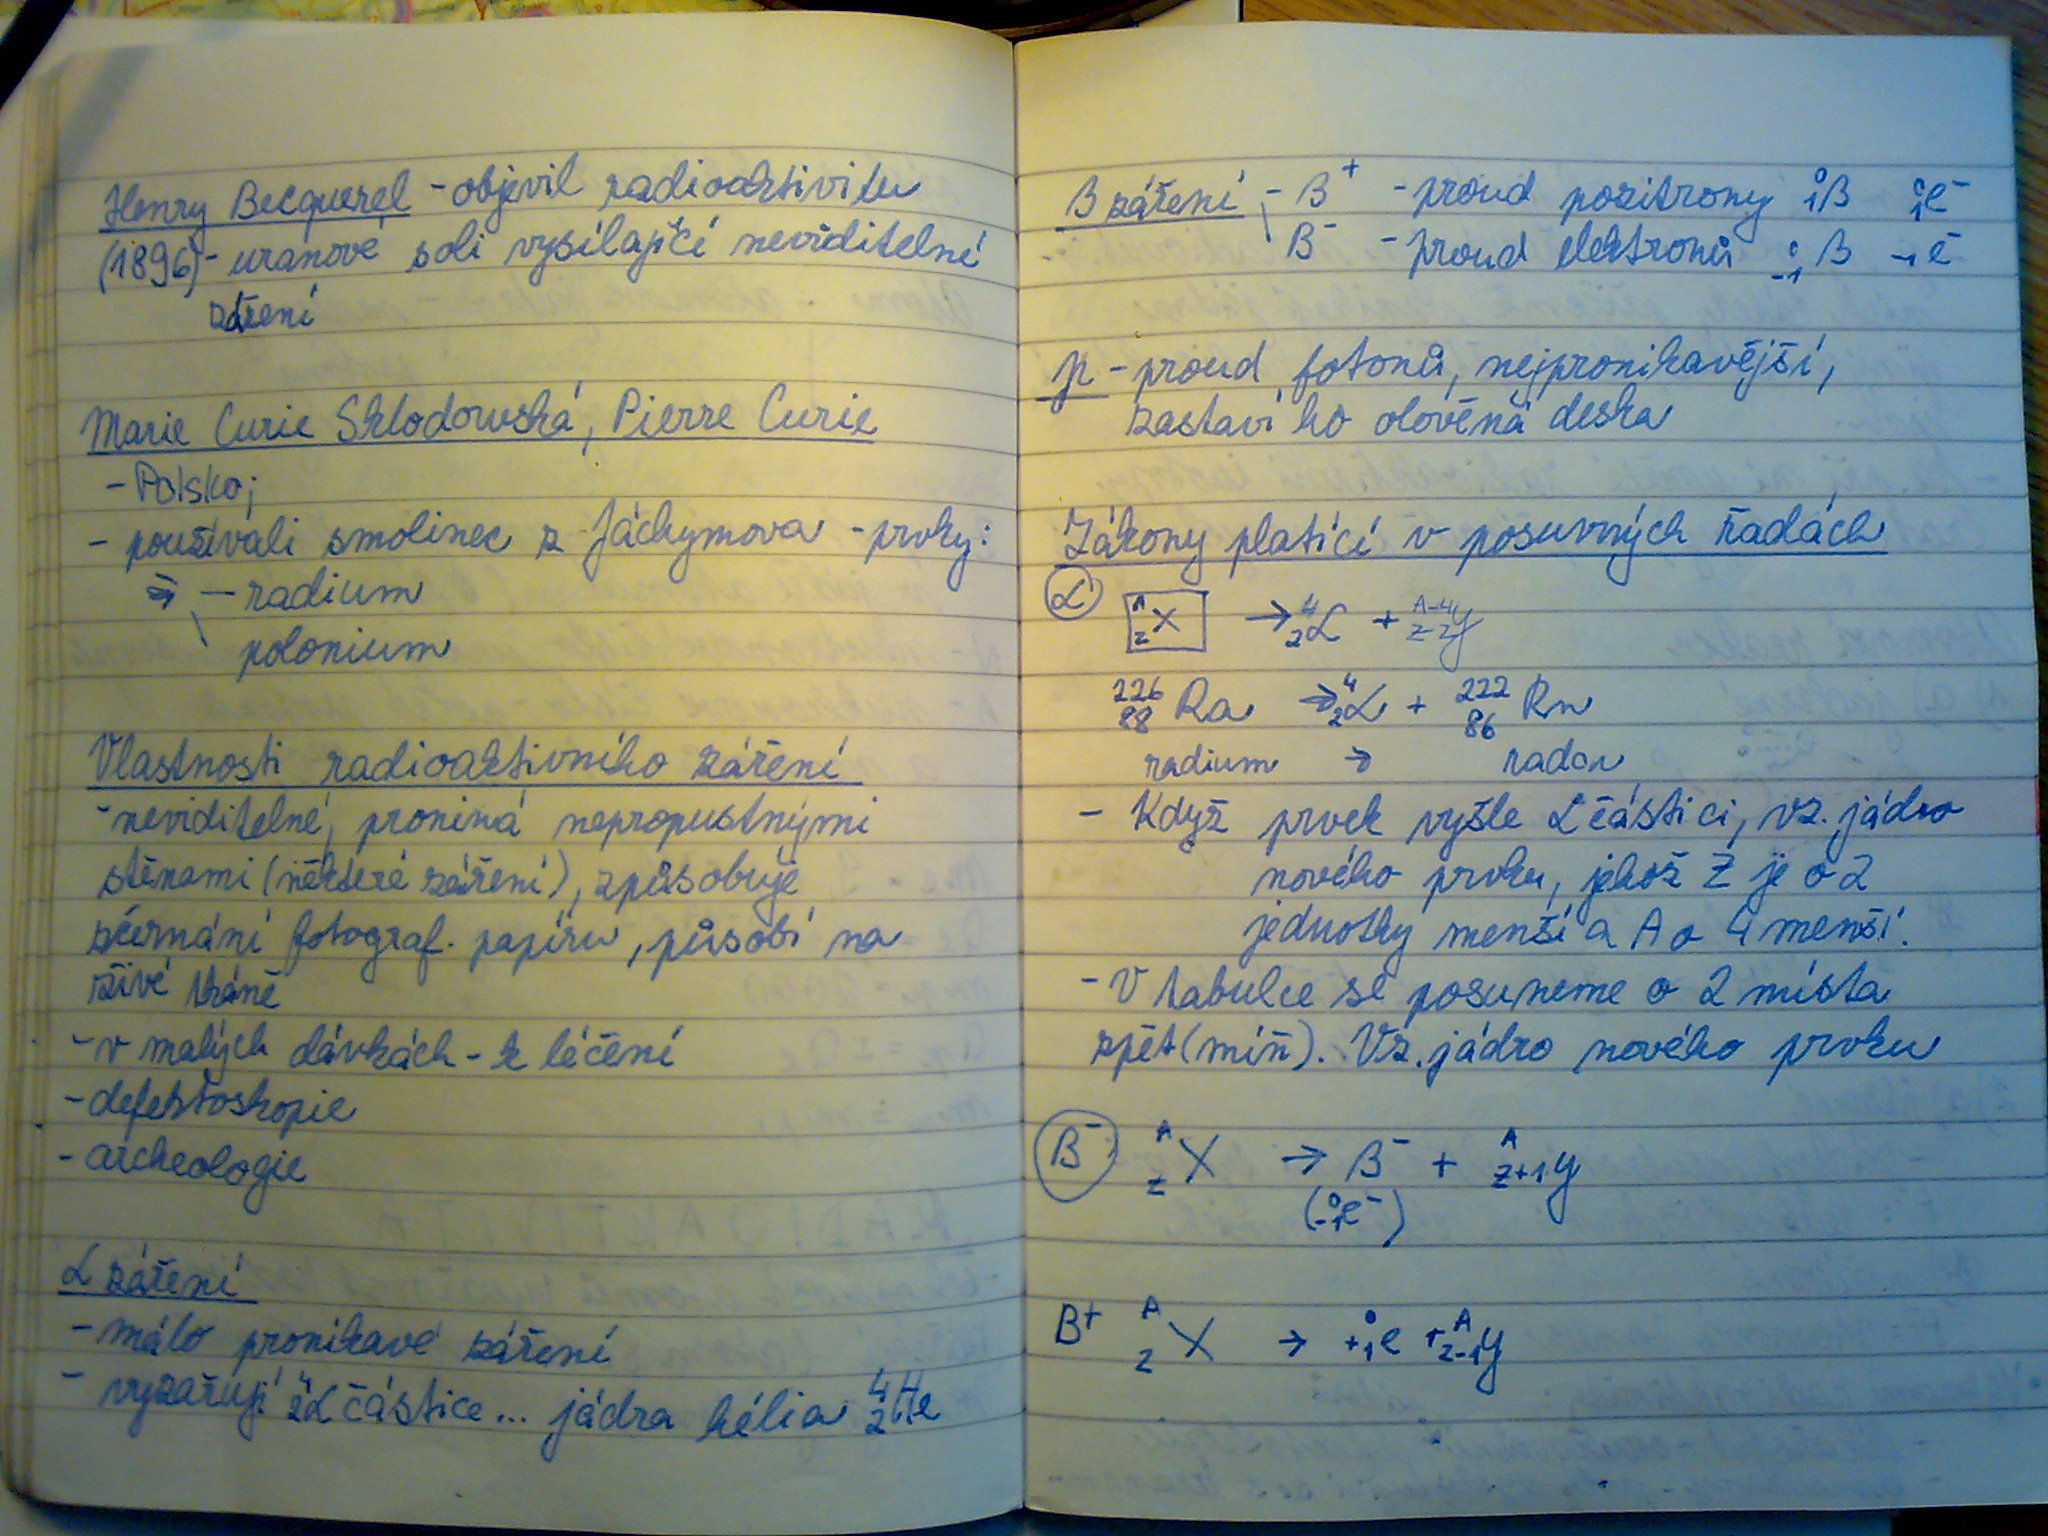 Henry Becquerel - objevil radioaktivitu
(1896) - uranové soli vysílající neviditelné
záření
Marie Curie Skłodowská, Pierre Curie
- Polsko;
- používali smolinec z Jáchymova - prvky:
⇒ — radium
\ polonium
Vlastnosti radioaktivního záření
- neviditelné, proniná nepropustnými
stěnami (některé záření), způsobuje
sčernání fotograf. papíru, působí na
živé tkáně
- v malých dávkách - k léčení
- defektoskopie
- archeologie
α záření
- málo pronikavé záření
- vyzařují ⁴₂α částice... jádra hélia ⁴₂He
B záření - B⁺ - proud pozitrony ⁰₁B ⁰₁e⁻
\ B⁻ - proud elektronů ⁰₋₁B ₋₁e⁻
γ - proud fotonů, nejpronikavější,
zastaví ho olověná deska
Zákony platící v posuvných řadách
α ᴬ_ZX → ⁴₂α + ᴬ⁻⁴_Z₋₂Y
²²⁶₈₈Ra → ⁴₂α + ²²²₈₆Rn
radium → radon
- Když prvek vyšle α částici, vz. jádro
nového prvku, jehož Z je o 2
jednotky menší a A o 4 menší.
- V tabulce se posuneme o 2 místa
zpět (míň). Vz. jádro nového prvku
B⁻ ᴬ_ZX → B⁻ + ᴬ_Z₊₁Y
(⁰₋₁e⁻)
B+ ᴬ_ZX → ⁰₊₁e + ᴬ_Z₋₁Y